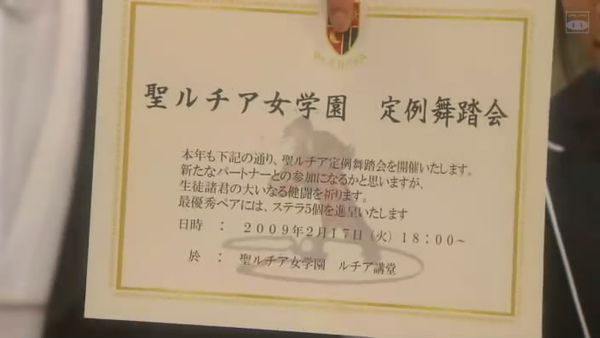 聖ルチア女学園 定例舞踏会
本年も下記の通り、聖ルチア定例舞踏会を開催いたします。
新たなパートナーとの参加になるかと思いますが、
生徒諸君の大いなる健闘を祈ります。
最優秀ペアには、ステラ5個を進呈いたします
日時 : 2009年2月17日(火)18:00~
於 : 聖ルチア女学園 ルチア講堂